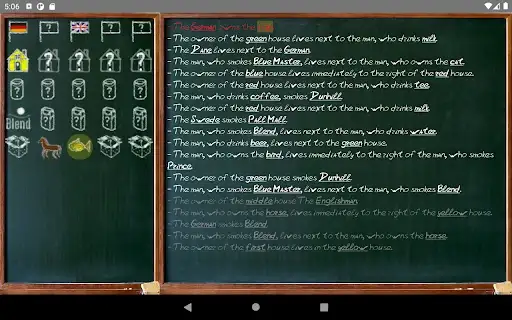 5:06
- The German owns the
- The owner of the green house lives next to the man, who drinks milk.
- The Dane lives next to the German.
- The man, who smokes Blue Master, lives next to the man, who owns the cat.
- The owner of the blue house lives immediately to the right of the red house.
- The owner of the red house lives next to the man, who drinks tee.
- The man, who drinks coffee, smokes Dunhill.
- The owner of the red house lives next to the man, who drinks milk.
- The Swede smokes Pall Mall.
- The man, who smokes Blend, lives next to the man, who drinks water.
- The man, who drinks beer, lives next to the green house.
- The man, who owns the bird, lives immediately to the right of the man, who smokes
Prince.
- The owner of the green house smokes Dunhill.
- The man, who smokes Blue Master, lives next to the man, who smokes Blend.
- The owner of the middle house The Englishman.
- The man, who owns the horse, lives immediately to the right of the yellow house.
- The German smokes Blend.
- The man, who smokes Blend, lives next to the man, who owns the horse.
- The owner of the first house lives in the yellow house.
? ? ?
? ? ? ?
? ? ? ? ?
Blend ? ? ? ?